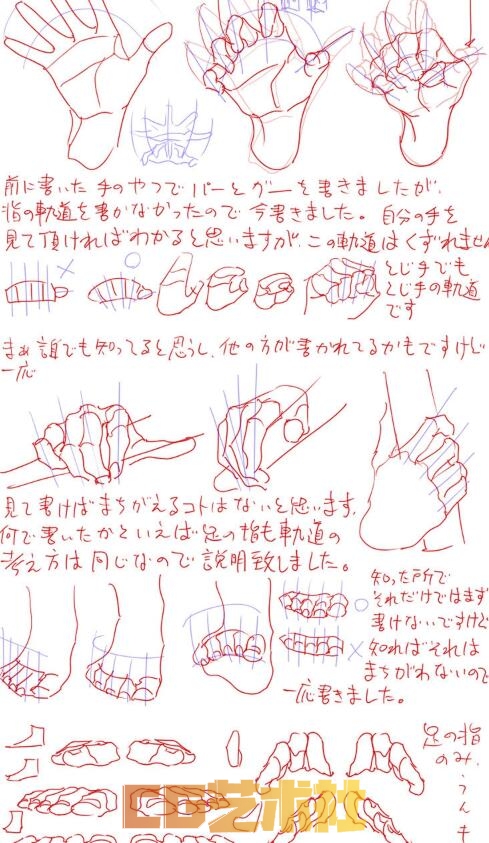 前に書いた手のやつでパーとグーを書きましたが、
指の軌道を書かなかったので今書きました。自分の手を
見て頂ければわかると思いますが、この軌道はくずれません
とじ手でも
とじ手の軌道
です
まぁ誰でも知ってると思うし、他の方が書かれてるかもですけど
一応
見て書けばまちがえるコトはないと思います。
何で書いたかといえば足の指も軌道の
考え方は同じなので説明致しました。
知った所で
それだけではまず
書けないですけど
知ればそれは
まちがわないので
一応書きました。
足の指
のみ、
うんキ
CD艺术社